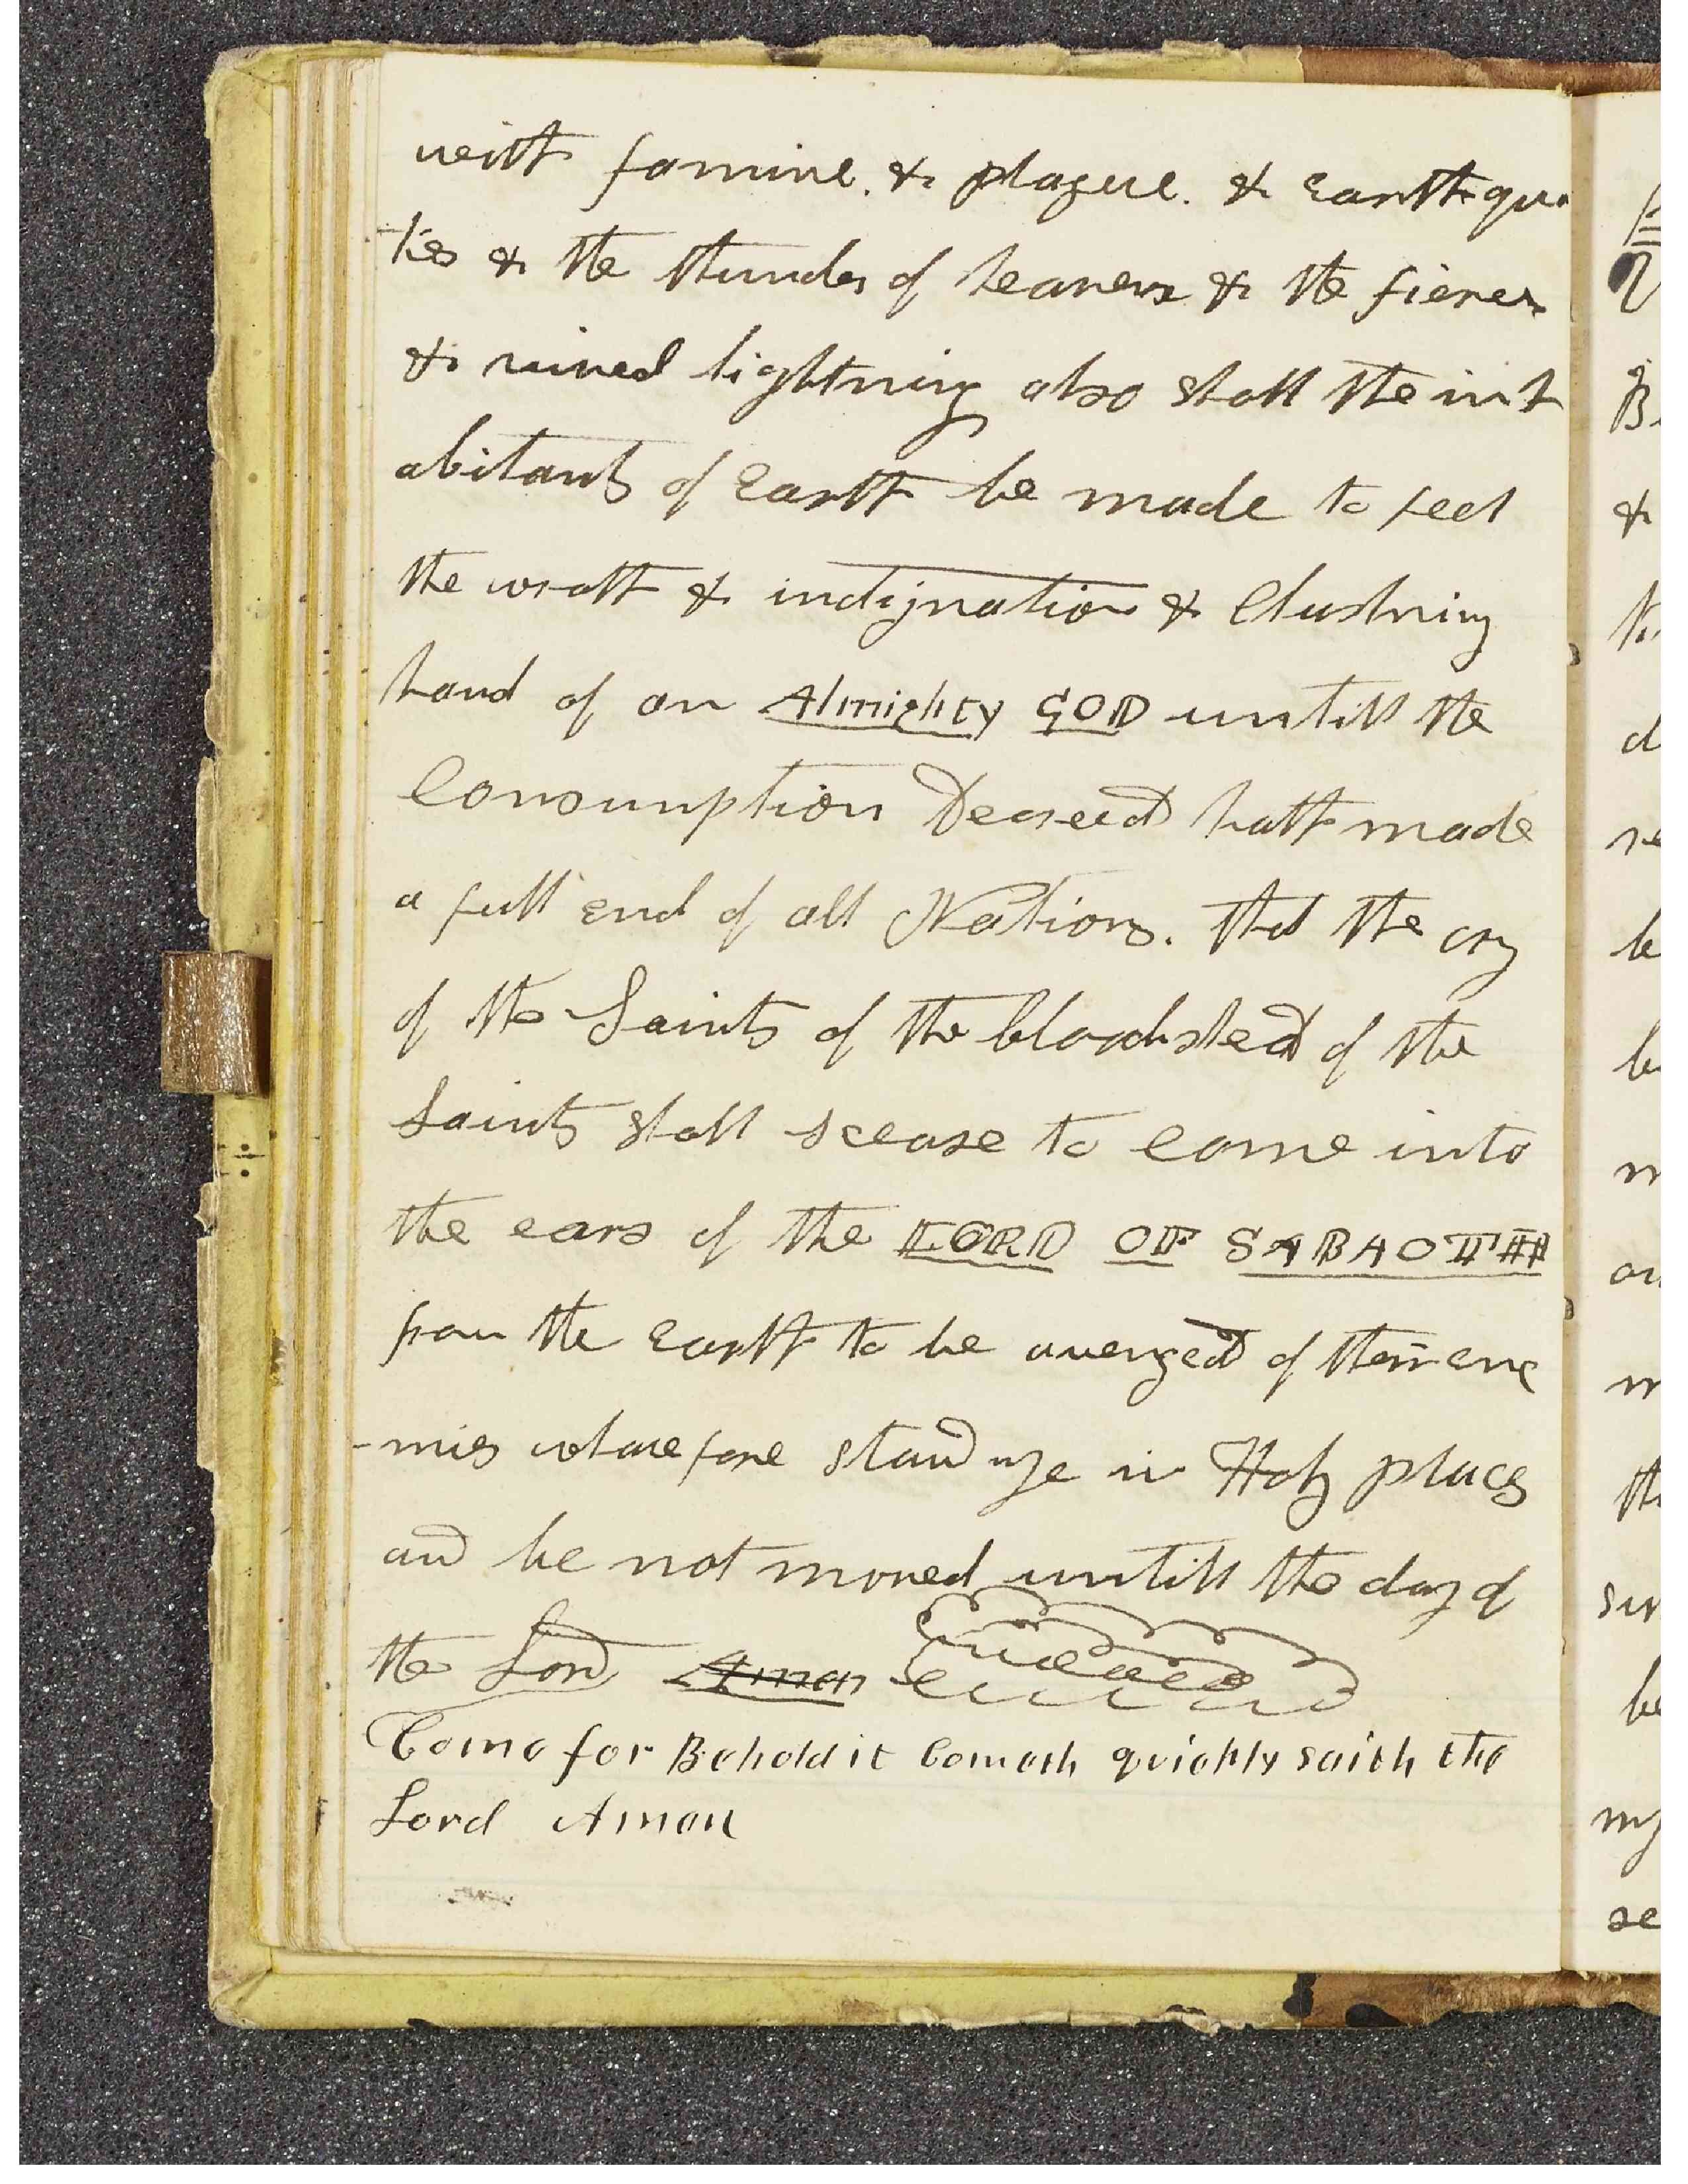 with famine. & plague. & Earthqua
-kes & the thunder of heavens & the fierce
& vived lightning also shall the inh
abitants of Earth be made to feel
the wrath & indignation & Chastning
hand of an Almighty GOD untill the
Consumption Decreed hath made
a full end of all Nations. that the cry
of the Saints & of the bloodshed of the
Saints shall scease to come into
the ears of the LORD OF SABAOTH
from the Earth to be avenged of their ene
-mies wharefore stand ye in Holy places
and be not moved untill the day of
the Lord Amen
Come for Behold it Cometh quickly saith the
Lord Amen